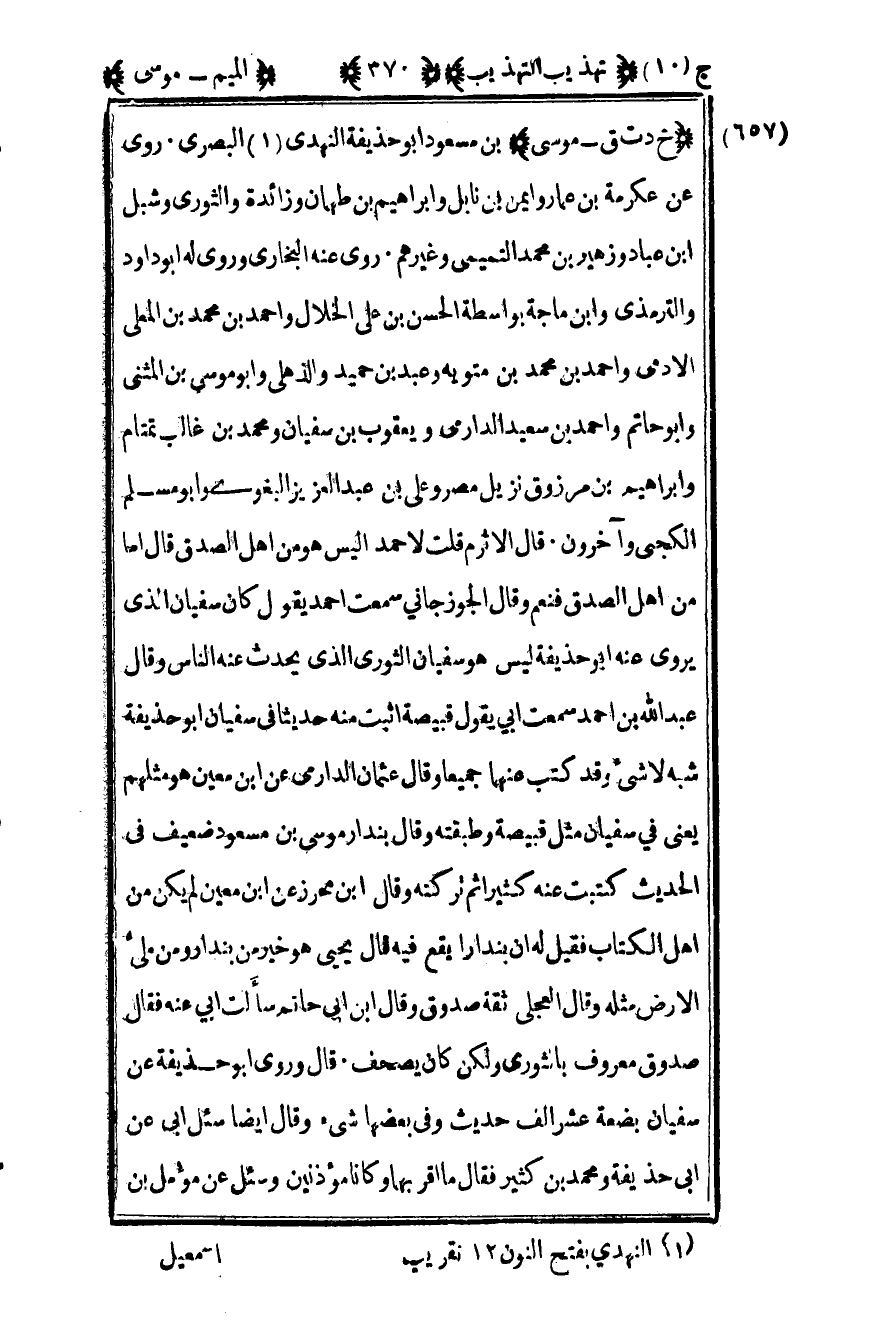 ج (١٠) ﴿ تهذيب التهذيب ﴾ ﴿ ٣٧٠ ﴾ ﴿ الميم ـ موسى ﴾
(٦٥٧) ﴿ خ د ت ق ـ موسى ﴾ بن مسعود ابو حذيفة النهدى (١) البصرى ٠ روى
عن عكرمة بن عمار وايمن بن نابل وابراهيم بن طهمان وزائدة والثورى وشبل
ابن عباد وزهير بن محمد التميمى وغيرهم ٠ روى عنه البخارى وروى له ابو داود
والترمذى وابن ماجة بواسطة الحسن بن على الخلال واحمد بن محمد بن المعلى
الادمى واحمد بن محمد بن متويه وعبد بن حميد والذهلى وابو موسي بن المثنى
وابو حاتم واحمد بن سعيد الدارمى و يعقوب بن سفيان ومحمد بن غالب تمتام
وابراهيم بن مرزوق نزيل مصر وعلى بن عبد العزيز البغوے وابو مسـلم
الكجى وآخرون ٠ قال الاثرم قلت لاحمد اليس هو من اهل الصدق قال اما
من اهل الصدق فنعم وقال الجوزجاني سمعت احمد يقول كان سفيان الذى
يروى عنه ابو حذيفة ليس هو سفيان الثورى الذى يحدث عنه الناس وقال
عبد الله بن احمد سمعت ابي يقول قبيصة اثبت منه حديثا فى سفيان ابو حذيفة
شبه لا شئ وقد كتب عنهما جميعا وقال عثمان الدارمى عن ابن معين هو مثلهم
يعنى في سفيان مثل قبيصة وطبقته وقال بندار موسى بن مسعود ضعيف فى
الحديث كتبت عنه كثيرا ثم تركته وقال ابن محرز عن ابن معين لم يكن من
اهل الكتاب فقيل له ان بندارا يقع فيه قال يحيى هو خير من بندار ومن ملئ
الارض مثله وقال العجلى ثقة صدوق وقال ابن ابى حاتم سأَلت ابي عنه فقال
صدوق معروف بالثورى ولكن كان يصحف ٠ قال وروى ابو حـذيفة عن
سفيان بضعة عشر الف حديث وفى بعضها شىء وقال ايضا سئل ابى عن
ابى حذيفة ومحمد بن كثير فقال ما اقربهما وكانا مؤذنين وسئل عن مؤمل بن
(١) النهدي بفتح النون ١٢ تقريب
اسمعيل